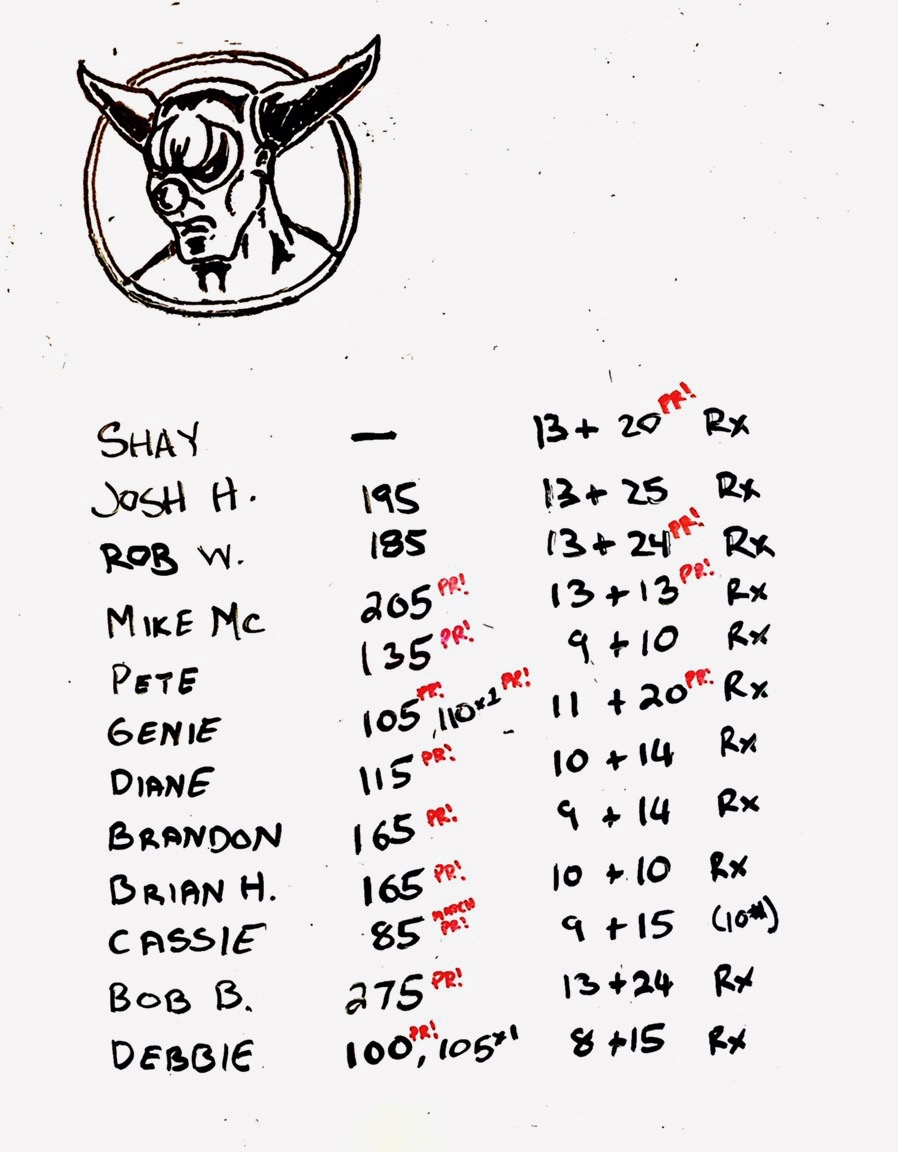 SHAY — 13 + 20 PR! Rx
JOSH H. 195 13 + 25 Rx
ROB W. 185 13 + 24 PR! Rx
MIKE MC 205 PR! 13 + 13 PR! Rx
PETE 135 PR! 9 + 10 Rx
GENIE 105 PR!, 110x1 PR! 11 + 20 PR! Rx
DIANE 115 PR! 10 + 14 Rx
BRANDON 165 PR! 9 + 14 Rx
BRIAN H. 165 PR! 10 + 10 Rx
CASSIE 85 MATCH PR! 9 + 15 (10#)
BOB B. 275 PR! 13 + 24 Rx
DEBBIE 100 PR!, 105x1 8 + 15 Rx